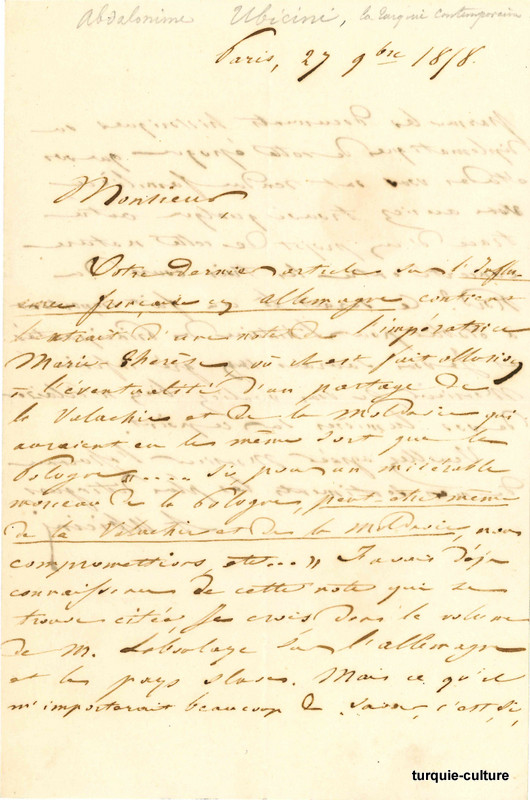 Abdalonime Ubicini, la turquie contemporaine
Paris, 27 9bre 1858.
Monsieur
Votre dernier article sur l'Influ-
ence française en allemagne contient
l'extrait d'une note de l'impératrice
Marie Thérèse où il est fait allusion
à l'éventualité d'un partage de
la Valachie et de la Moldavie qui
auraient eu le même sort que la
Pologne "..... si pour un misérable
morceau de la Pologne, peut être même
de la Valachie et de la Moldavie, nous
compromettions, etc...." J'avais déjà
connaissance de cette note qui se
trouve citée, je crois, dans le volume
de M. sur l'allemagne
et les pays slaves. Mais ce qu'il
m'importerait beaucoup de savoir, c'est si,
turquie-culture